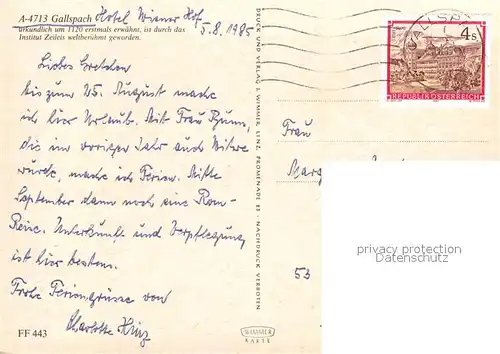 A-4713 Gallspach Hotel Wiener Hof
urkundlich um 1120 erstmals erwähnt, ist durch das
Institut Zeileis weltberühmt geworden.
5.8.1985
Liebes Gretchen
bis zum 25. August mache
ich hier Urlaub. Mit Frau
die im vorigen Jahr auch Witwe
wurde, mache ich Ferien. Mitte
September dann noch eine Rom-
Reise. Unterkunft und Verpflegung
ist hier bestens.
Frohe Feriengrüsse von
Charlotte Hinz
FF 443
DRUCK UND VERLAG J. WIMMER, LINZ, PROMENADE 23 - NACHDRUCK VERBOTEN
4 S
REPUBLIK ÖSTERREICH
Frau
53
WIMMER
KARTE
privacy protection
Datenschutz